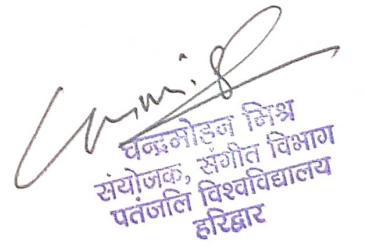 चन्द्रमोहन मिश्र
संयोजक, संगीत विभाग
पतंजलि विश्वविद्यालय
हरिद्वार